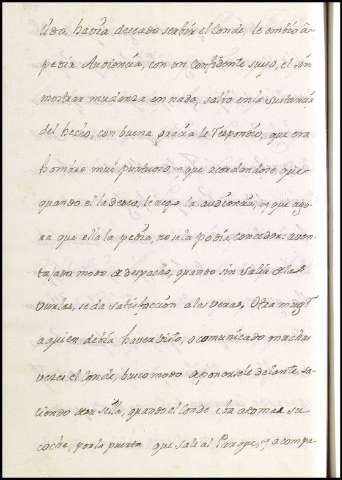 havia deseado servir el Conde, le embio à
pedir Audiencia, con un confidente suyo, el sin
mostrar mudanza en nada, salvo en la sustancia
del hecho, con buena gracia le respondio, que era
hombre mui puntuoso, y que acordandose, que
quando el la deseo, le nego la audiencia, y que ago-
ra que ella la pedia, no se la podia conceder: aven-
tajado modo de despacho, quando sin salir de las
burlas, se da satisfaccion a las veras. Otra mug.r
aquien debia haver visto, o comunicado muchas
veces el Conde, busco modo de ponersele delante, sa-
liendo de su silla, quando el Conde iba a tomar su
coche, por la puerta que sale al Parque, y acompa-